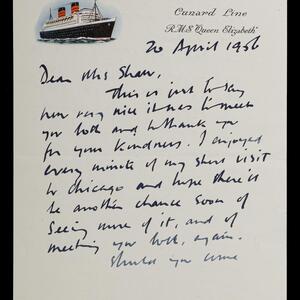 Cunard Line
R.M.S. "Queen Elizabeth"
20 April 1956
Dear Mrs Shaw,
This is just to say
how very nice it was to meet
you both and to thank you
for your kindness. I enjoyed
every minute of my short visit
to Chicago and hope there'll
be another chance soon of
seeing more of it, and of
meeting you both, again.
Should you come